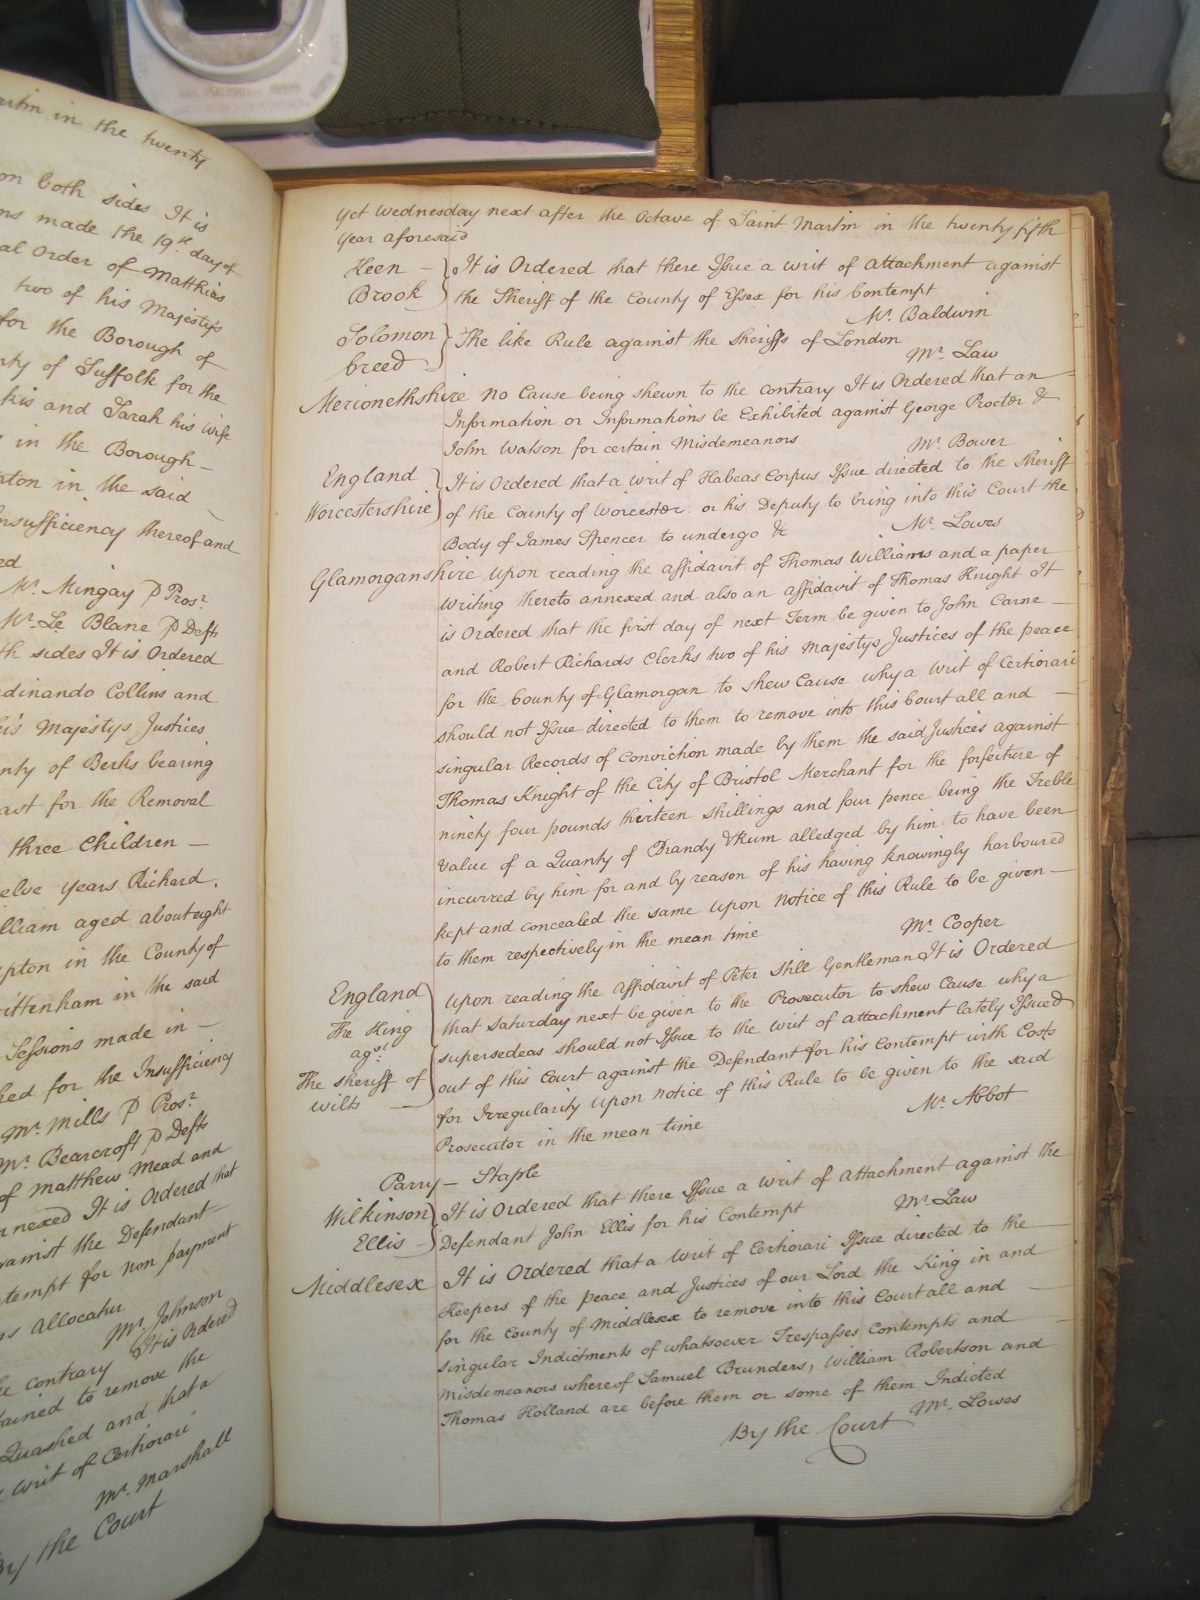 artin in the twenty
on both sides It is
ns made the 19th day of
al Order of Matthias
two of his Majestys
for the Borough of
nty of Suffolk for the
kis and Sarah his Wife
in the Borough —
ston in the said
Insufficiency thereof and
ed
Mr. Mingay P Prosr.
Mr. Le Blane P Defts
th sides It is Ordered
rdinando Collins and
his Majestys Justices
nty of Berks bearing
ast for the Removal
three Children —
elve years Richard,
illiam aged about eight
pton in the County of
rittenham in the said
Sessions made in —
hed for the Insufficiency
Mr. Mills P Prosr.
Mr. Bearcroft P Defts
of Matthew Mead and
nnexed It is Ordered that
gainst the Defendant —
ntempt for non payment
ns Allocatur
Mr. Johnson
he contrary It is Ordered
tained to remove the
Quashed and that a
writ of Certiorari
Mr. Marshall
By the Court
Yet Wednesday next after the Octave of Saint Martin in the twenty fifth
Year aforesaid
Keen — It is Ordered that there Issue a writ of Attachment against
Brook the Sheriff of the County of Essex for his Contempt
Mr. Baldwin
Solomon The like Rule against the Sheriffs of London
Creed Mr. Law
Merionethshire No Cause being shewn to the contrary It is Ordered that an —
Information or Informations be Exhibited against George Procter &
John Watson for certain Misdemeanors Mr. Bower
England It is Ordered that a writ of Habeas Corpus Issue directed to the Sheriff
Worcestershire of the County of Worcester or his Deputy to bring into this Court the
Body of James Spencer to undergo &c Mr. Lowes
Glamorganshire Upon reading the affidavit of Thomas Williams and a paper
Writing thereto annexed and also an affidavit of Thomas Knight It
is Ordered that the first day of next Term be given to John Carne —
and Robert Richards Clerks two of his Majestys Justices of the peace
for the County of Glamorgan to shew Cause why a Writ of Certiorari
should not Issue directed to them to remove into this Court all and —
singular Records of Conviction made by them the said Justices against
Thomas Knight of the City of Bristol Merchant for the forfeiture of
ninety four pounds thirteen shillings and four pence being the Treble
value of a Quanty of Brandy & Rum alledged by him to have been
incurred by him for and by reason of his having knowingly harboured
kept and concealed the same Upon Notice of this Rule to be given —
to them respectively in the mean time Mr. Cooper
England Upon reading the Affidavit of Peter Still Gentleman It is Ordered
The King that Saturday next be given to the Prosecutor to shew Cause why a
agst. supersedeas should not Issue to the Writ of Attachment lately Issued
The Sheriff of out of this Court against the Defendant for his Contempt with Costs
Wilts — for Irregularity Upon Notice of this Rule to be given to the said
Prosecutor in the mean time Mr. Abbot
Parry — Staple
Wilkinson It is Ordered that there Issue a Writ of Attachment against the
Ellis — Defendant John Ellis for his Contempt Mr. Law
Middlesex It is Ordered that a Writ of Certiorari Issue directed to the —
Keepers of the peace and Justices of our Lord the King in and
for the County of Middlesex to remove into this Court all and —
singular Indictments of whatsoever Trespasses Contempts and —
Misdemeanors whereof Samuel Brunders, William Robertson and
Thomas Holland are before them or some of them Indicted
By the Court Mr. Lowes